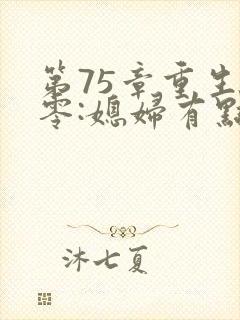 第75章重生
零:媳婦有點
沐七夏